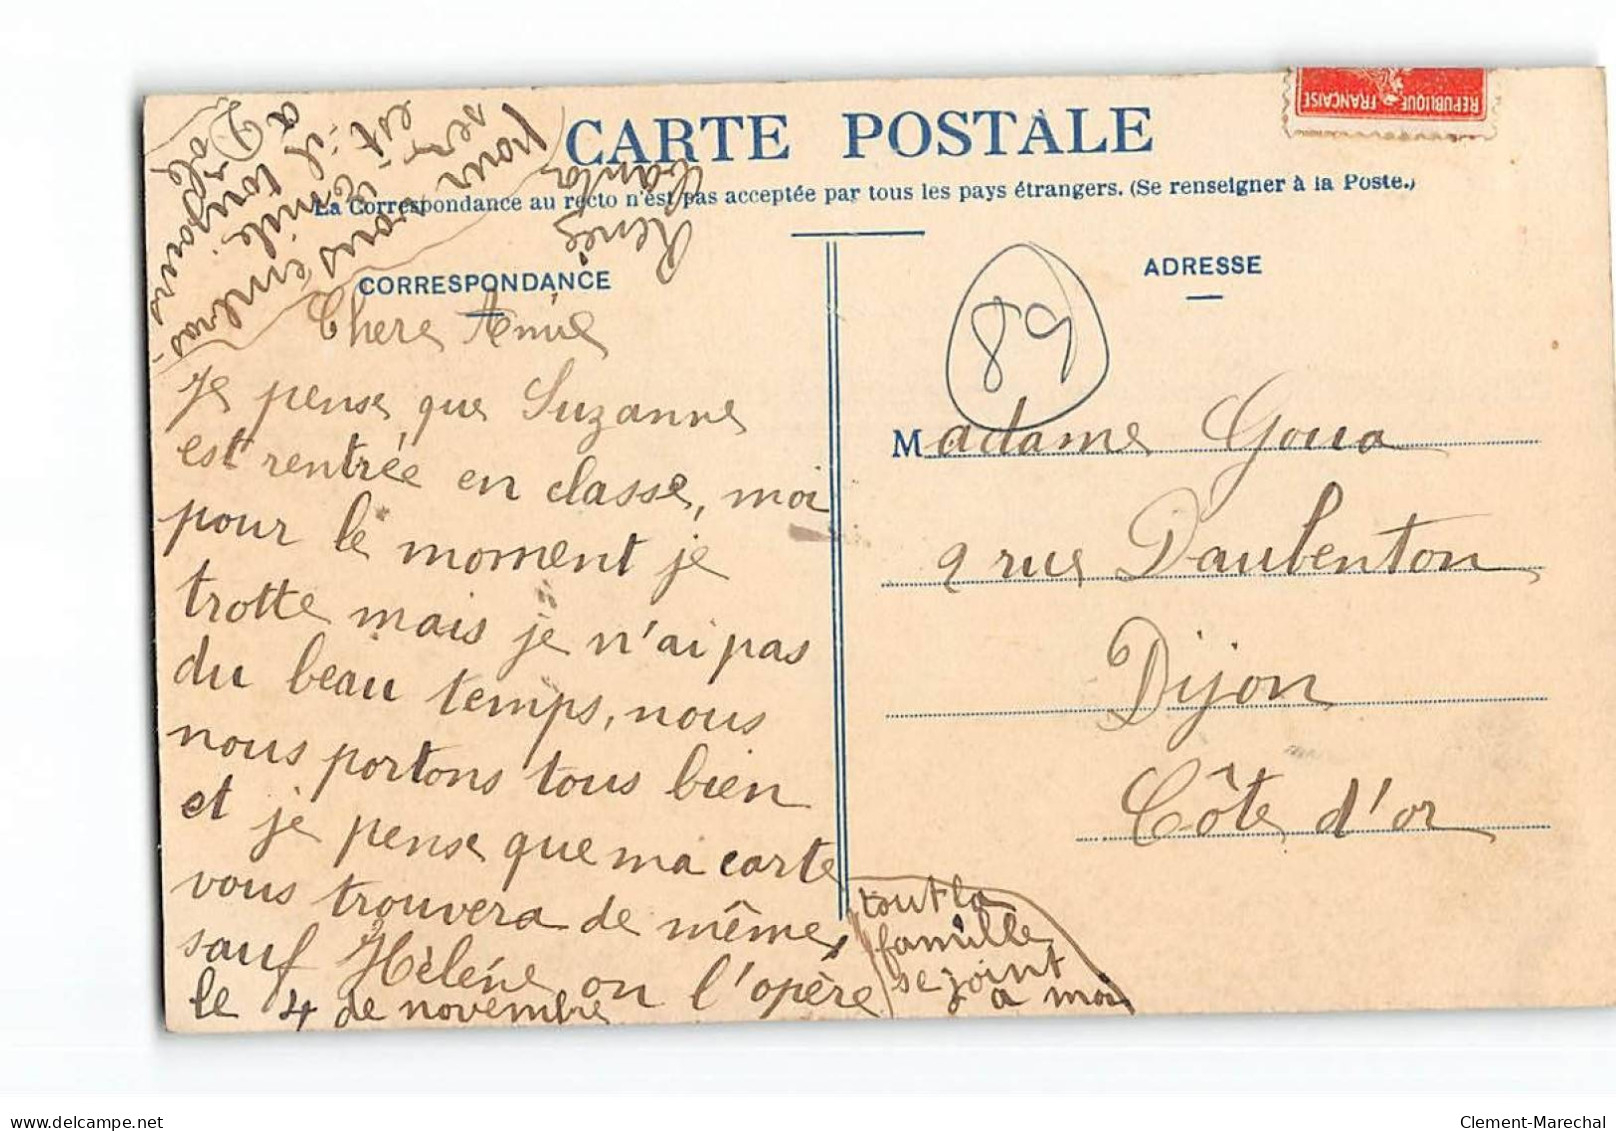 CARTE POSTALE
La Correspondance au recto n'est pas acceptée par tous les pays étrangers. (Se renseigner à la Poste.)
REPUBLIQUE FRANÇAISE
CORRESPONDANCE
Chere Amie
Je pense que Suzanne
est rentrée en classe, moi
pour le moment je
trotte mais je n'ai pas
du beau temps, nous
nous portons tous bien
et je pense que ma carte
vous trouvera de même,
sauf Hèléne on l'opère
le 4 de novembre
tout la
famille
se joint
a moi
pour vous embras-
ser, Emile
est-il toujours
a Dole
Renée
ADRESSE
89
Madame Goua
9 rue Daubenton
Dijon
Côte d'or
delcampe.net
Clement-Marechal